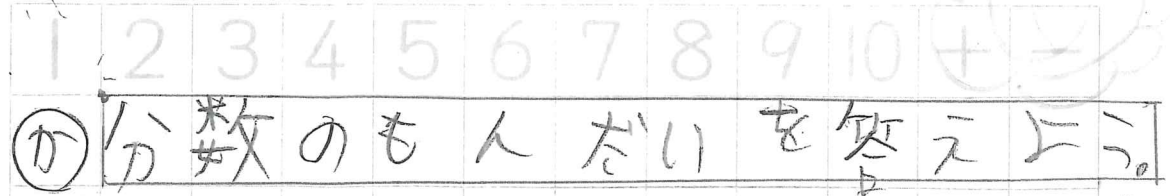 1 2 3 4 5 6 7 8 9 10 + -
か 分数のもんだいを答えよう。